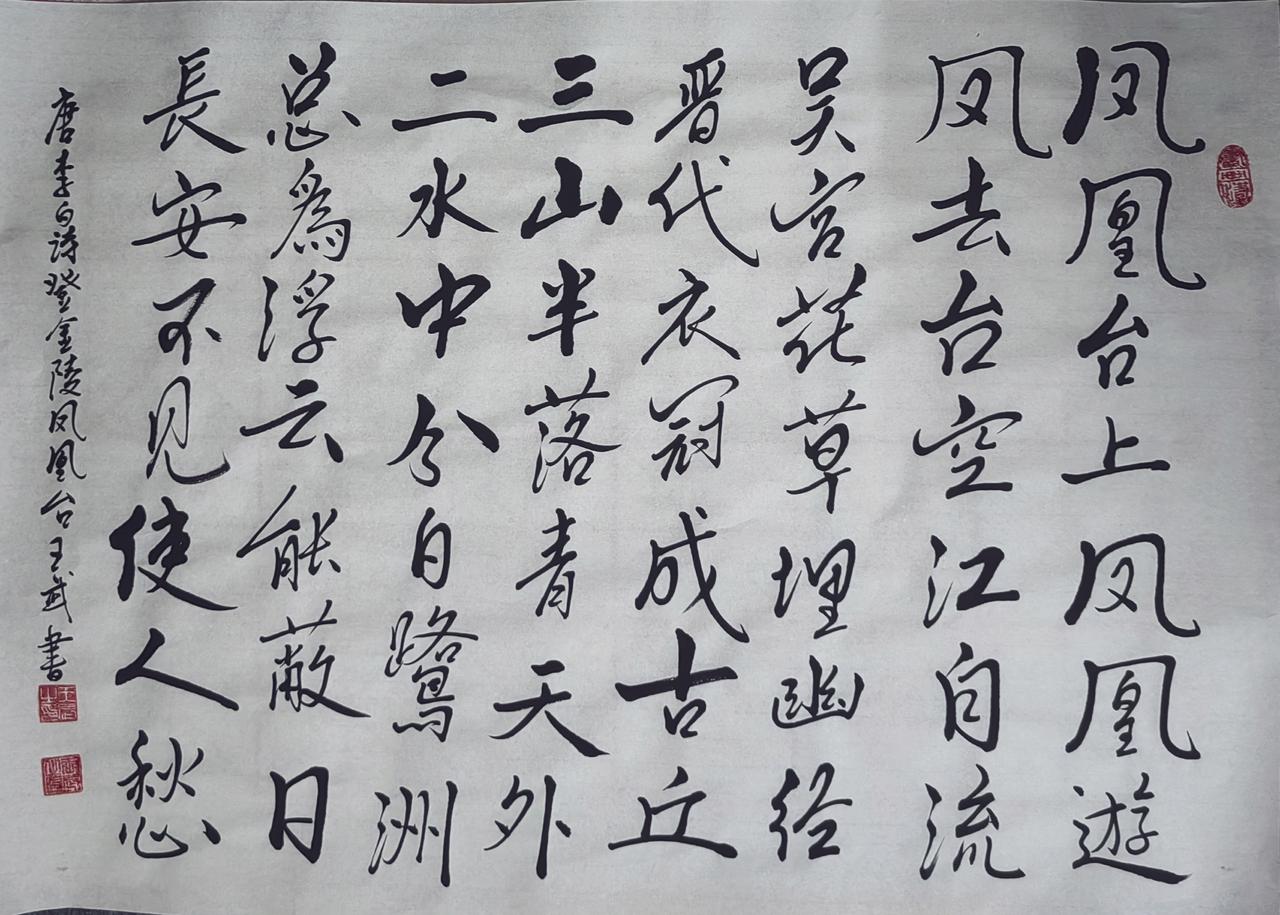 凤凰台上凤凰遊
凤去台空江自流
吴宫花草埋幽径
晋代衣冠成古丘
三山半落青天外
二水中分白鹭洲
总為浮云能蔽日
長安不见使人愁
唐李白诗登金陵凤凰台王武書